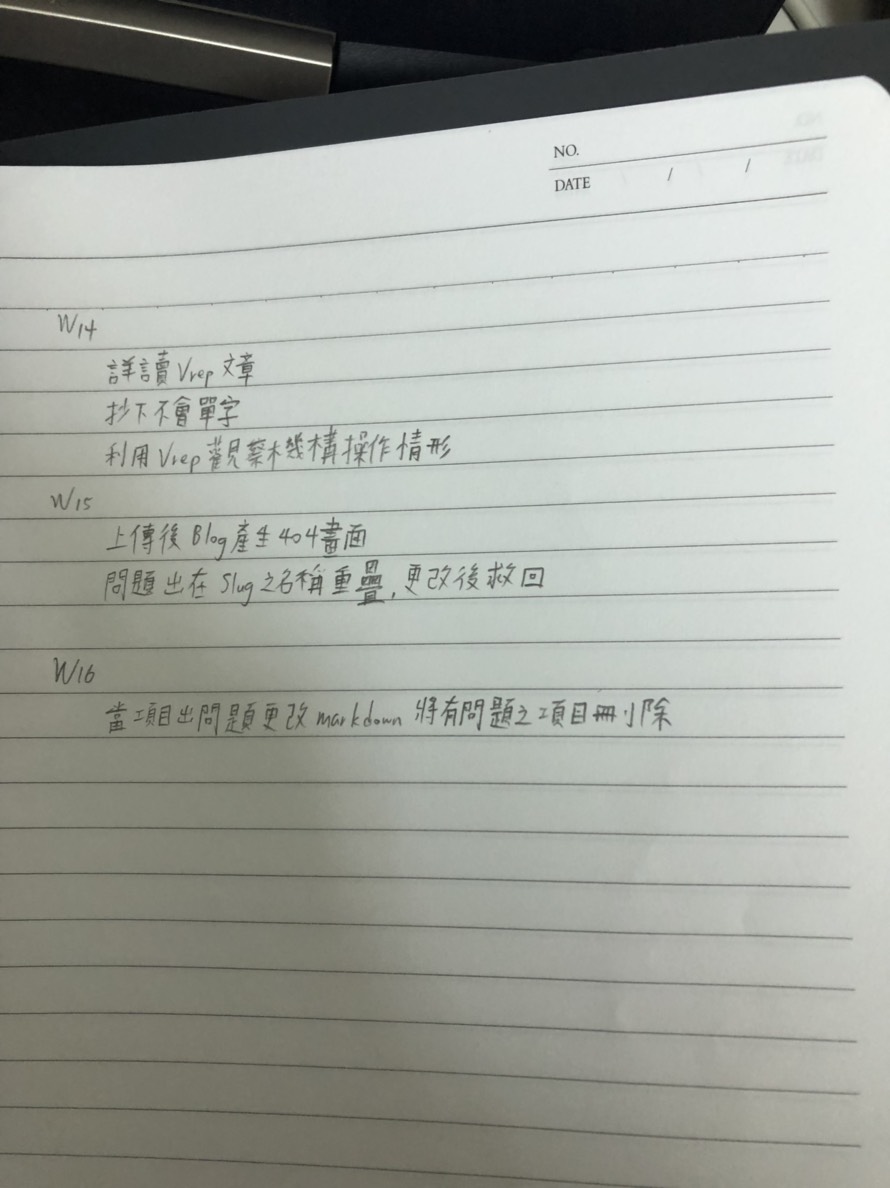 NO.
DATE / /
W14
詳讀 Vrep 文章
抄下不會單字
利用 Vrep 觀察機構操作情形
W15
上傳後 Blog 產生 404 畫面
問題出在 Slug 之名稱重疊,更改後救回
W16
當項目出問題更改 markdown 將有問題之項目刪除